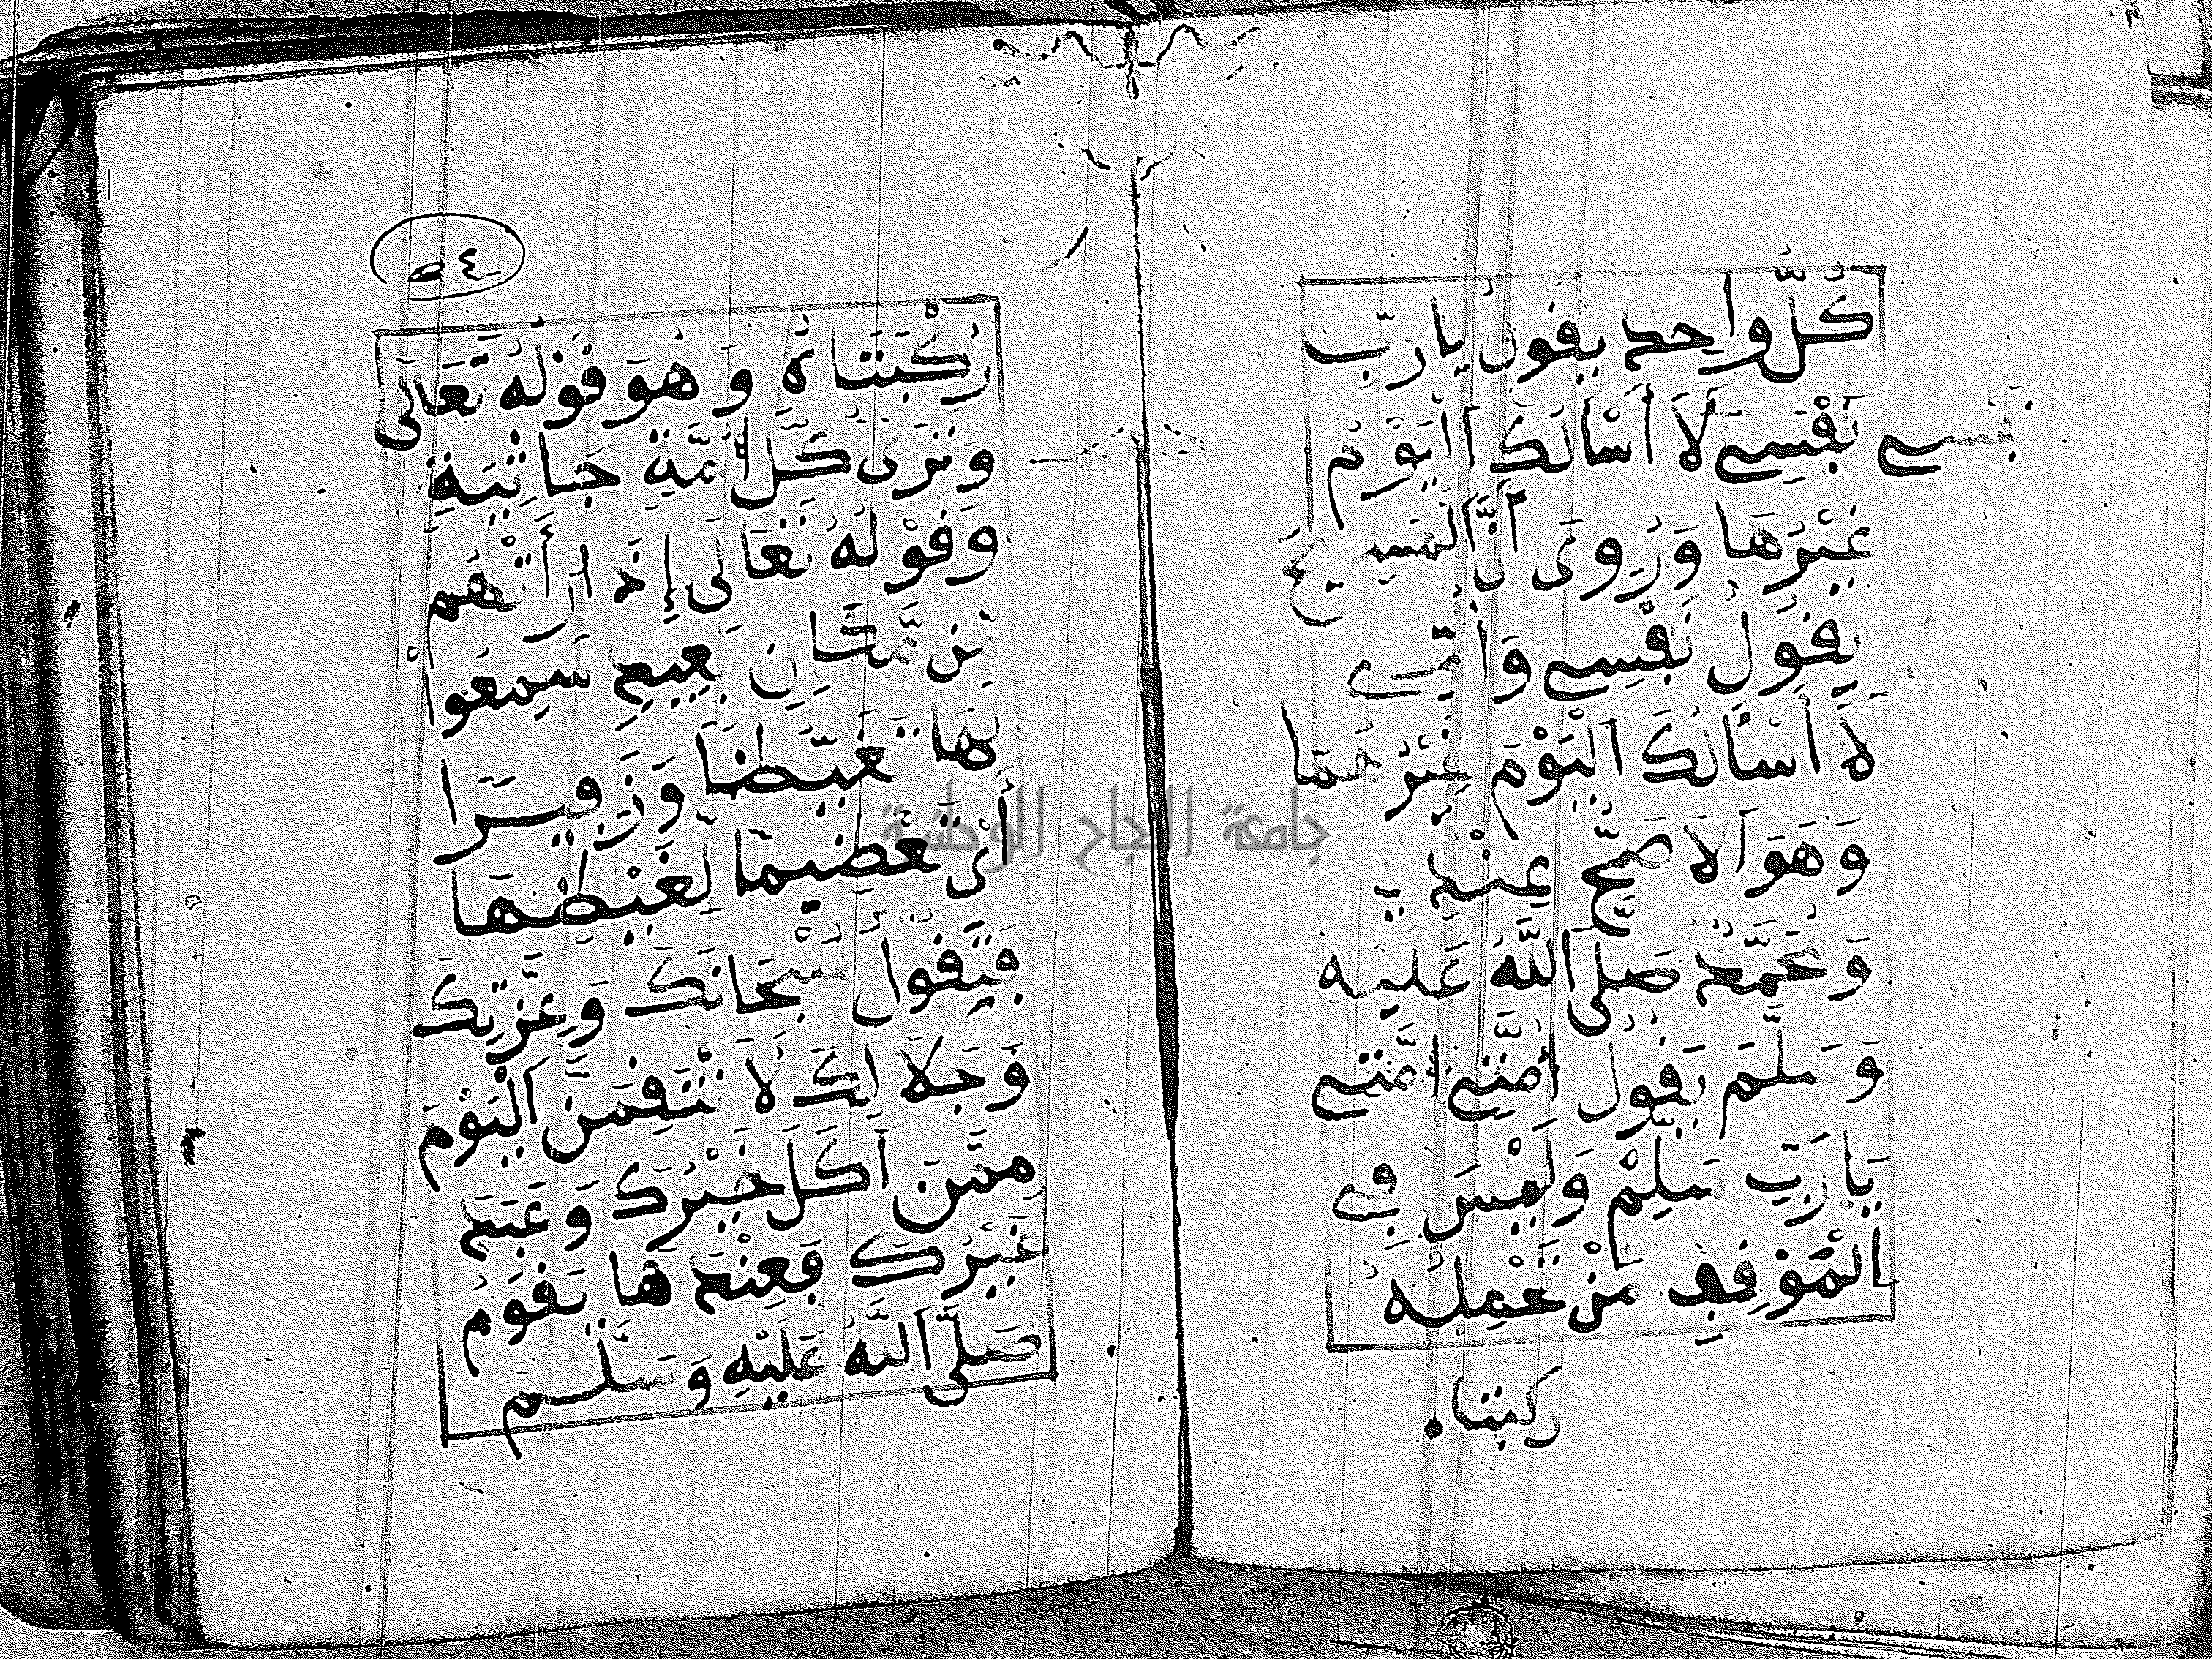 كُلُّ وَاحِدٍ يقول يا ربّ
نفسي نَفْسِي لَا أَسْأَلُكَ اليَوْمَ
غَيْرَهَا وَرُوِىَ أنَّ المسيح
يَقُولُ نَفْسِي وَأُمِّي
لَا أَسْأَلُكَ الْيَوْمَ غَيْرَهُمَا
وَهُوَ الَاصَحُّ عِنْدِي
وَمُحَمَّدٌ صَلى اللَّهُ عَلَيْه
وَسَلَّمَ يَقُولُ أُمَّتِي أُمَّتِي
يَا رَبِّ سَلِّمْ وَلَيْسَ فِي
الْمَوْقِفِ مَنْ تَحْمِلُهُ
ركبتاه
رُكْبَتَاهُ وَهُوَ قَوْلُهُ تَعَالَى
وَتَرَى كُلَّ أُمَّةٍ جَاثِيَةٍ
وَقَوْلُهُ تَعَالَى إِذَا رَأَتْهُم
مِن مَّكَانٍ بَعِيدٍ سَمِعُواْ
لَهَا تَغَيُّضًا وَزَفِيرًا
أَيْ تَعْضِيمًا لِغَيْضِهَا
فَيَقُولُ سُبْحَانَكَ وَعِزَّتِكَ
وَجَلَالِكَ لَا نْتَقِمَنَّ الْيَوْمَ
مِمَّنَ اكَلَ خَيْرَكَ وَعَبَدَ
غَيْرَكَ فَعِنْدَهَا يَقُومُ
صَلَّى اللَّهُ عَلَيْهِ وَسَلَّمَ
جامعة النجاح الوطنية